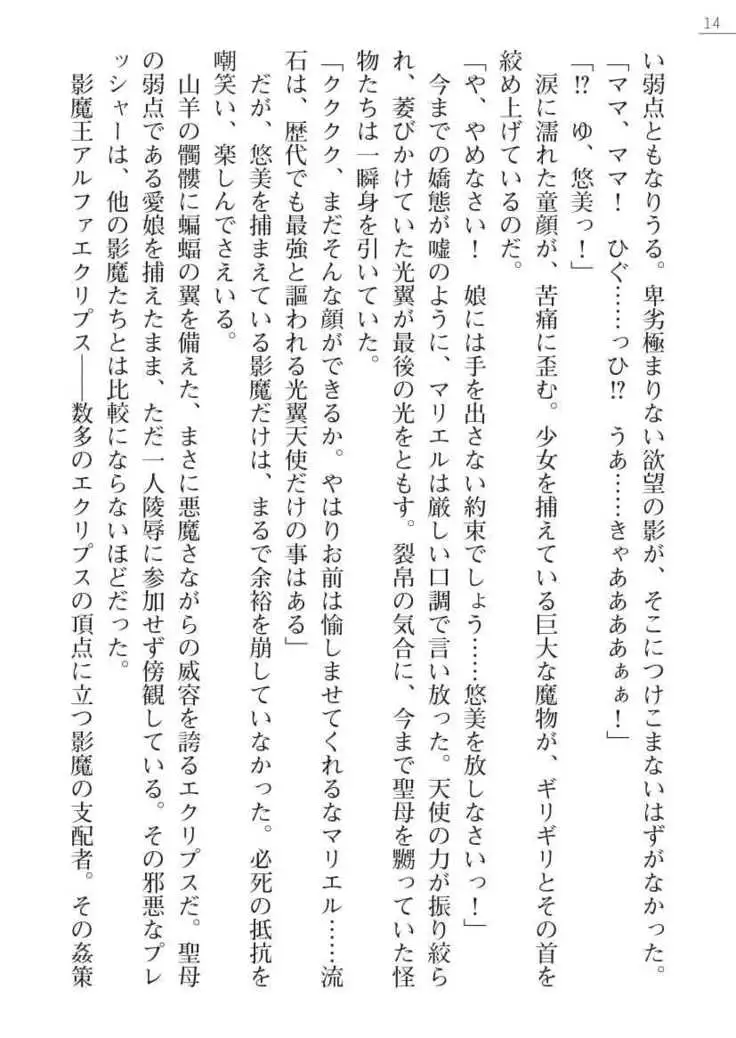 14
い弱点ともなりうる。卑劣極まりない欲望の影が、そこにつけこまないはずがなかった。
「ママ、ママ！　ひぐ……っひ!?　うあ……きゃああああぁぁ！」
「!?　ゆ、悠美っ！」
涙に濡れた童顔が、苦痛に歪む。少女を捕えている巨大な魔物が、ギリギリとその首を
絞め上げているのだ。
「や、やめなさい！　娘には手を出さない約束でしょう……悠美を放しなさいっ！」
今までの嬌態が嘘のように、マリエルは厳しい口調で言い放った。天使の力が振り絞ら
れ、萎びかけていた光翼が最後の光をともす。裂帛の気合に、今まで聖母を嬲っていた怪
物たちは一瞬身を引いていた。
「クククク、まだそんな顔ができるか。やはりお前は愉しませてくれるなマリエル……流
石は、歴代でも最強と謳われる光翼天使だけの事はある」
だが、悠美を捕まえている影魔だけは、まるで余裕を崩していなかった。必死の抵抗を
嘲笑い、楽しんでさえいる。
山羊の髑髏に蝙蝠の翼を備えた、まさに悪魔さながらの威容を誇るエクリプスだ。聖母
の弱点である愛娘を捕えたまま、ただ一人陵辱に参加せず傍観している。その邪悪なプレ
ッシャーは、他の影魔たちとは比較にならないほどだった。
影魔王アルファエクリプス――数多のエクリプスの頂点に立つ影魔の支配者。その姦策